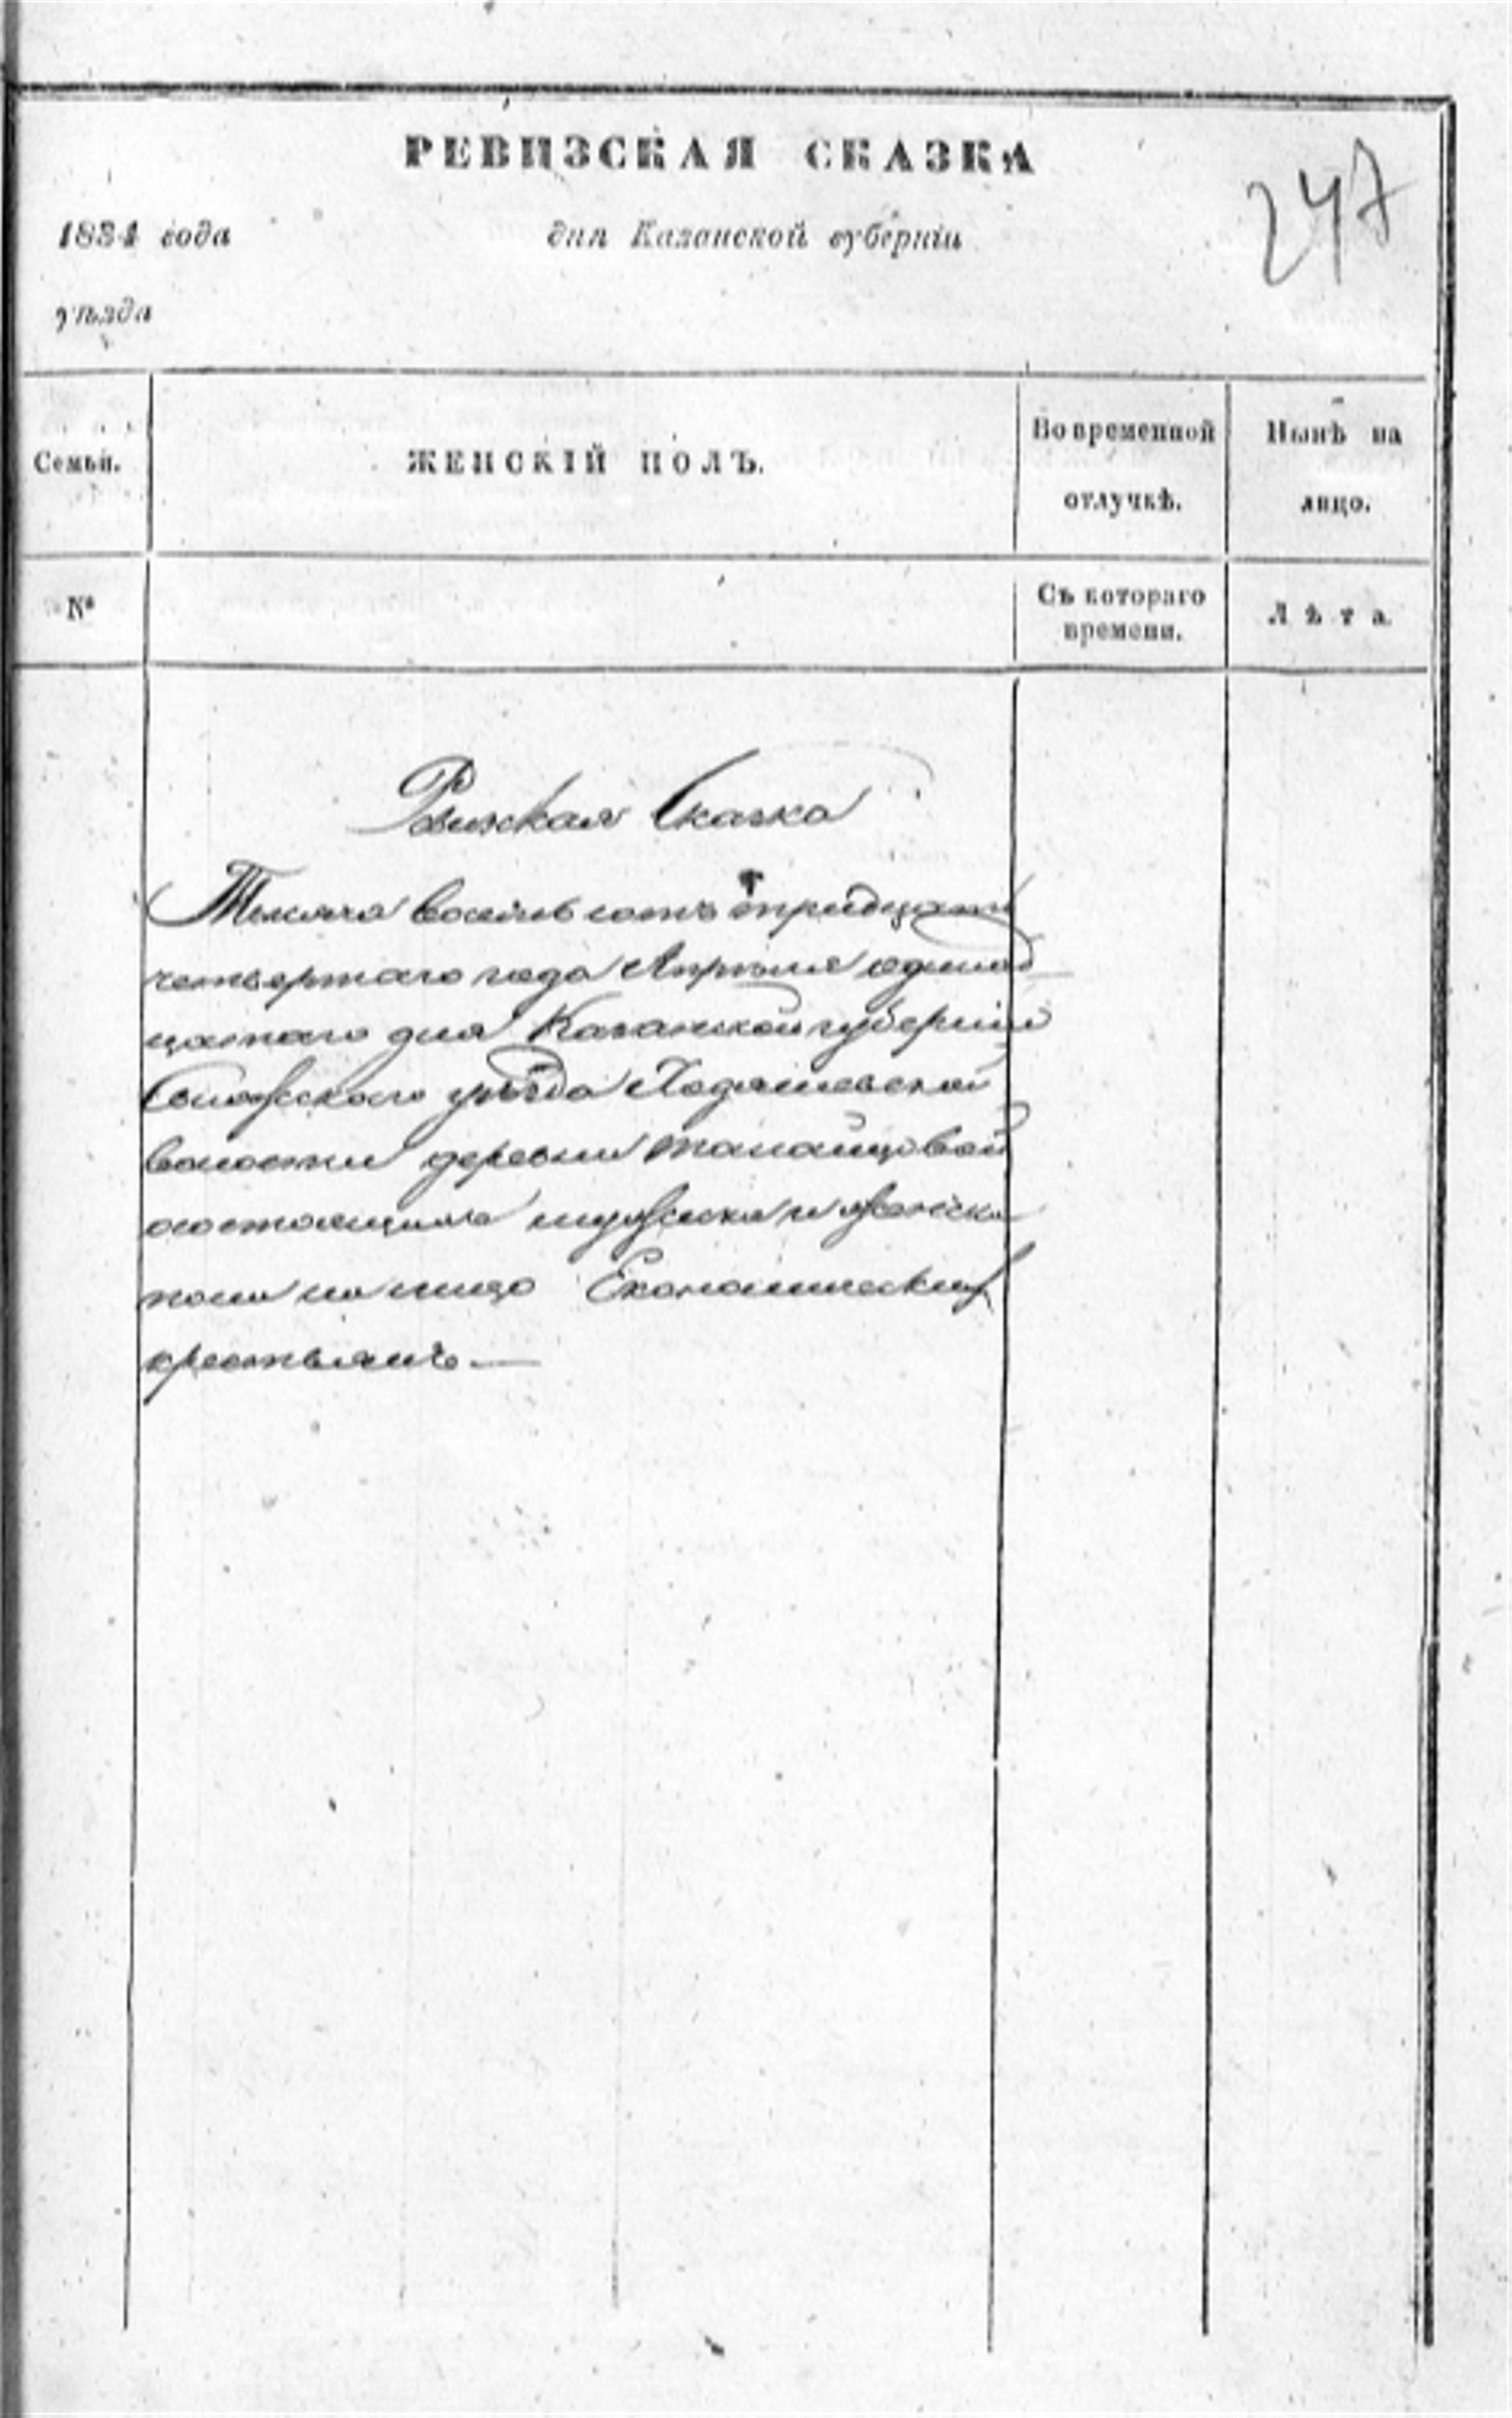 РЕВИЗСКАЯ СКАЗКА
247
1834 года дня Казанской губерніи
уѣзда
Семьи. ЖЕНСКІЙ ПОЛЪ. Во временной отлучкѣ. Нынѣ на лицо.
№ Съ котораго времени. Лѣта.
Ревизская Сказка
Тысяча восемь сотъ тридцать
четвертаго года Апреля одинад
цатаго дня Казанской губерніи
Свіяжского уѣзда
волости деревни
состоящихъ мужска и женска
пола на лицо Економических
крестьянъ